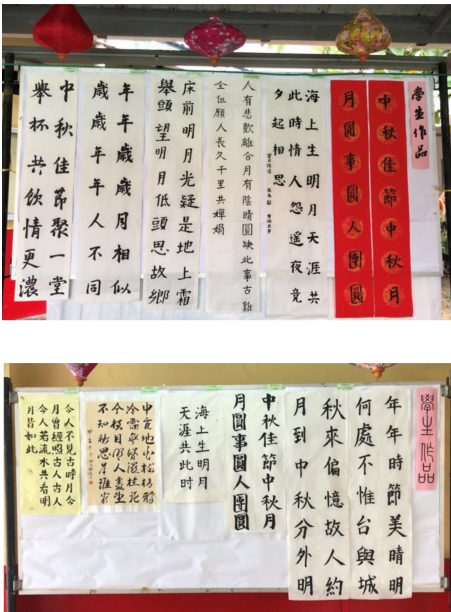 學生作品
中秋佳節中秋月
月圓事圓人團圓
海上生明月天涯共
此時情人怨遙夜竟
夕起相思
人有悲歡離合月有陰晴圓缺此事古難
全但願人長久千里共嬋娟
床前明月光疑是地上霜
舉頭望明月低頭思故鄉
年年歲歲月相似
歲歲年年人不同
中秋佳節聚一堂
舉杯共飲情更濃
學生作品
年年時節美晴明
何處不惟台與城
秋來偏憶故人約
月到中秋分外明
中秋佳節中秋月
月圓事圓人團圓
海上生明月
天涯共此時
中庭地白樹栖鴉
冷露無聲濕桂花
今夜月明人盡望
不知秋思落誰家
今人不見古時月今
月曾經照古人古人
今人若流水共看明
月皆如此